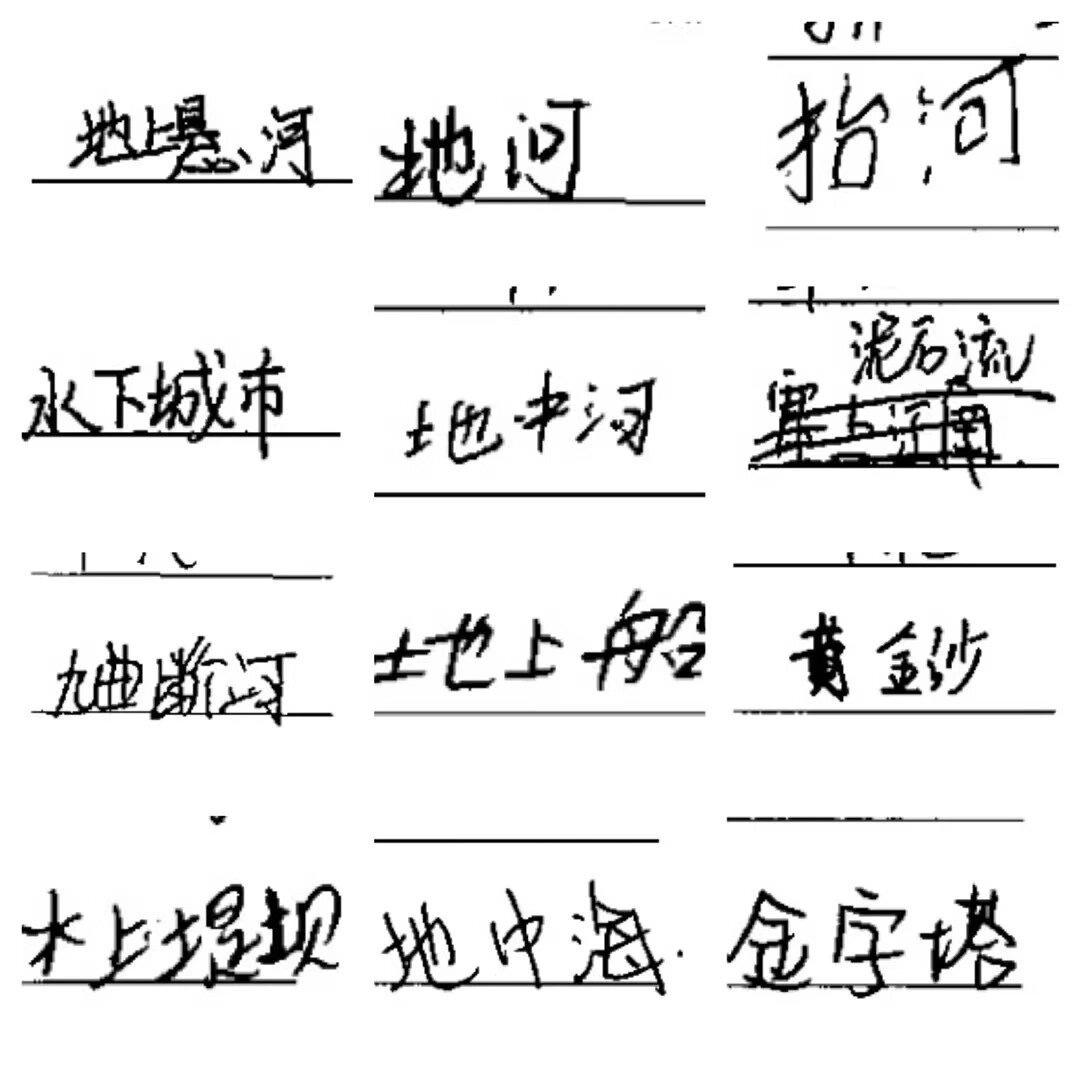 地上悬河
地河
抬河
水下城市
地中河
泥石流
九曲断河
土地上船
黄金沙
水上堤坝
地中海.
金字塔